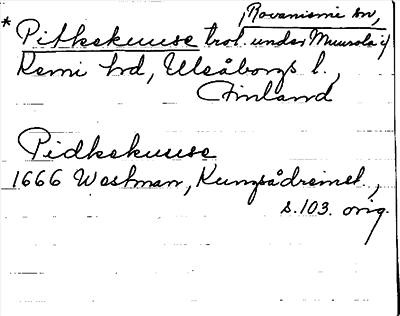 Rovaniemi sn,
* Pitkekuuse trol. under Muurola i
Kemi hd, Uleåborgs l.,
Finland
Pidkekuuse
1666 Westman, Kungsådremel,
s. 103. orig.